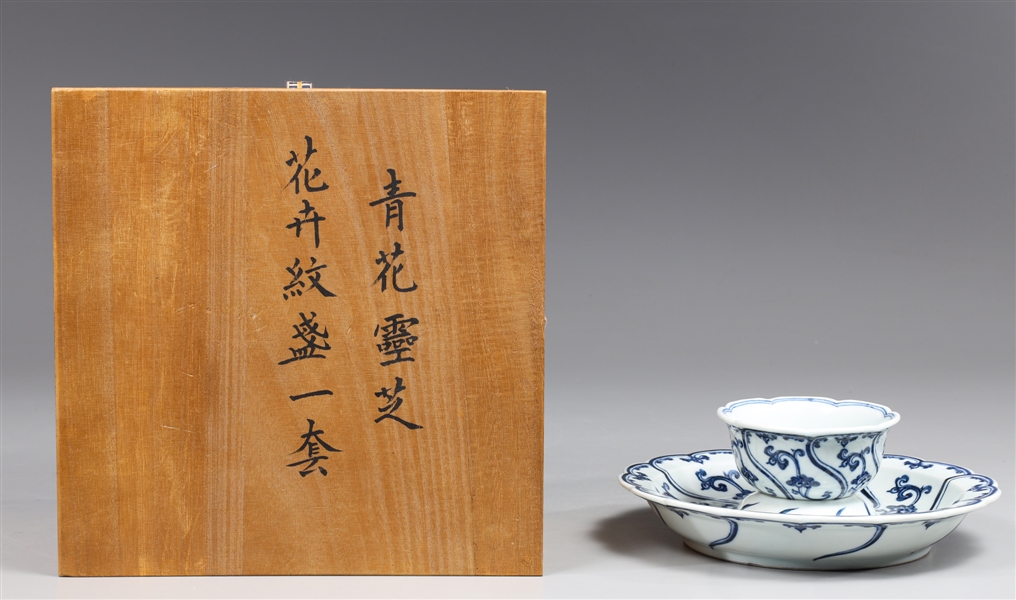 青花靈芝
花卉紋盞一套